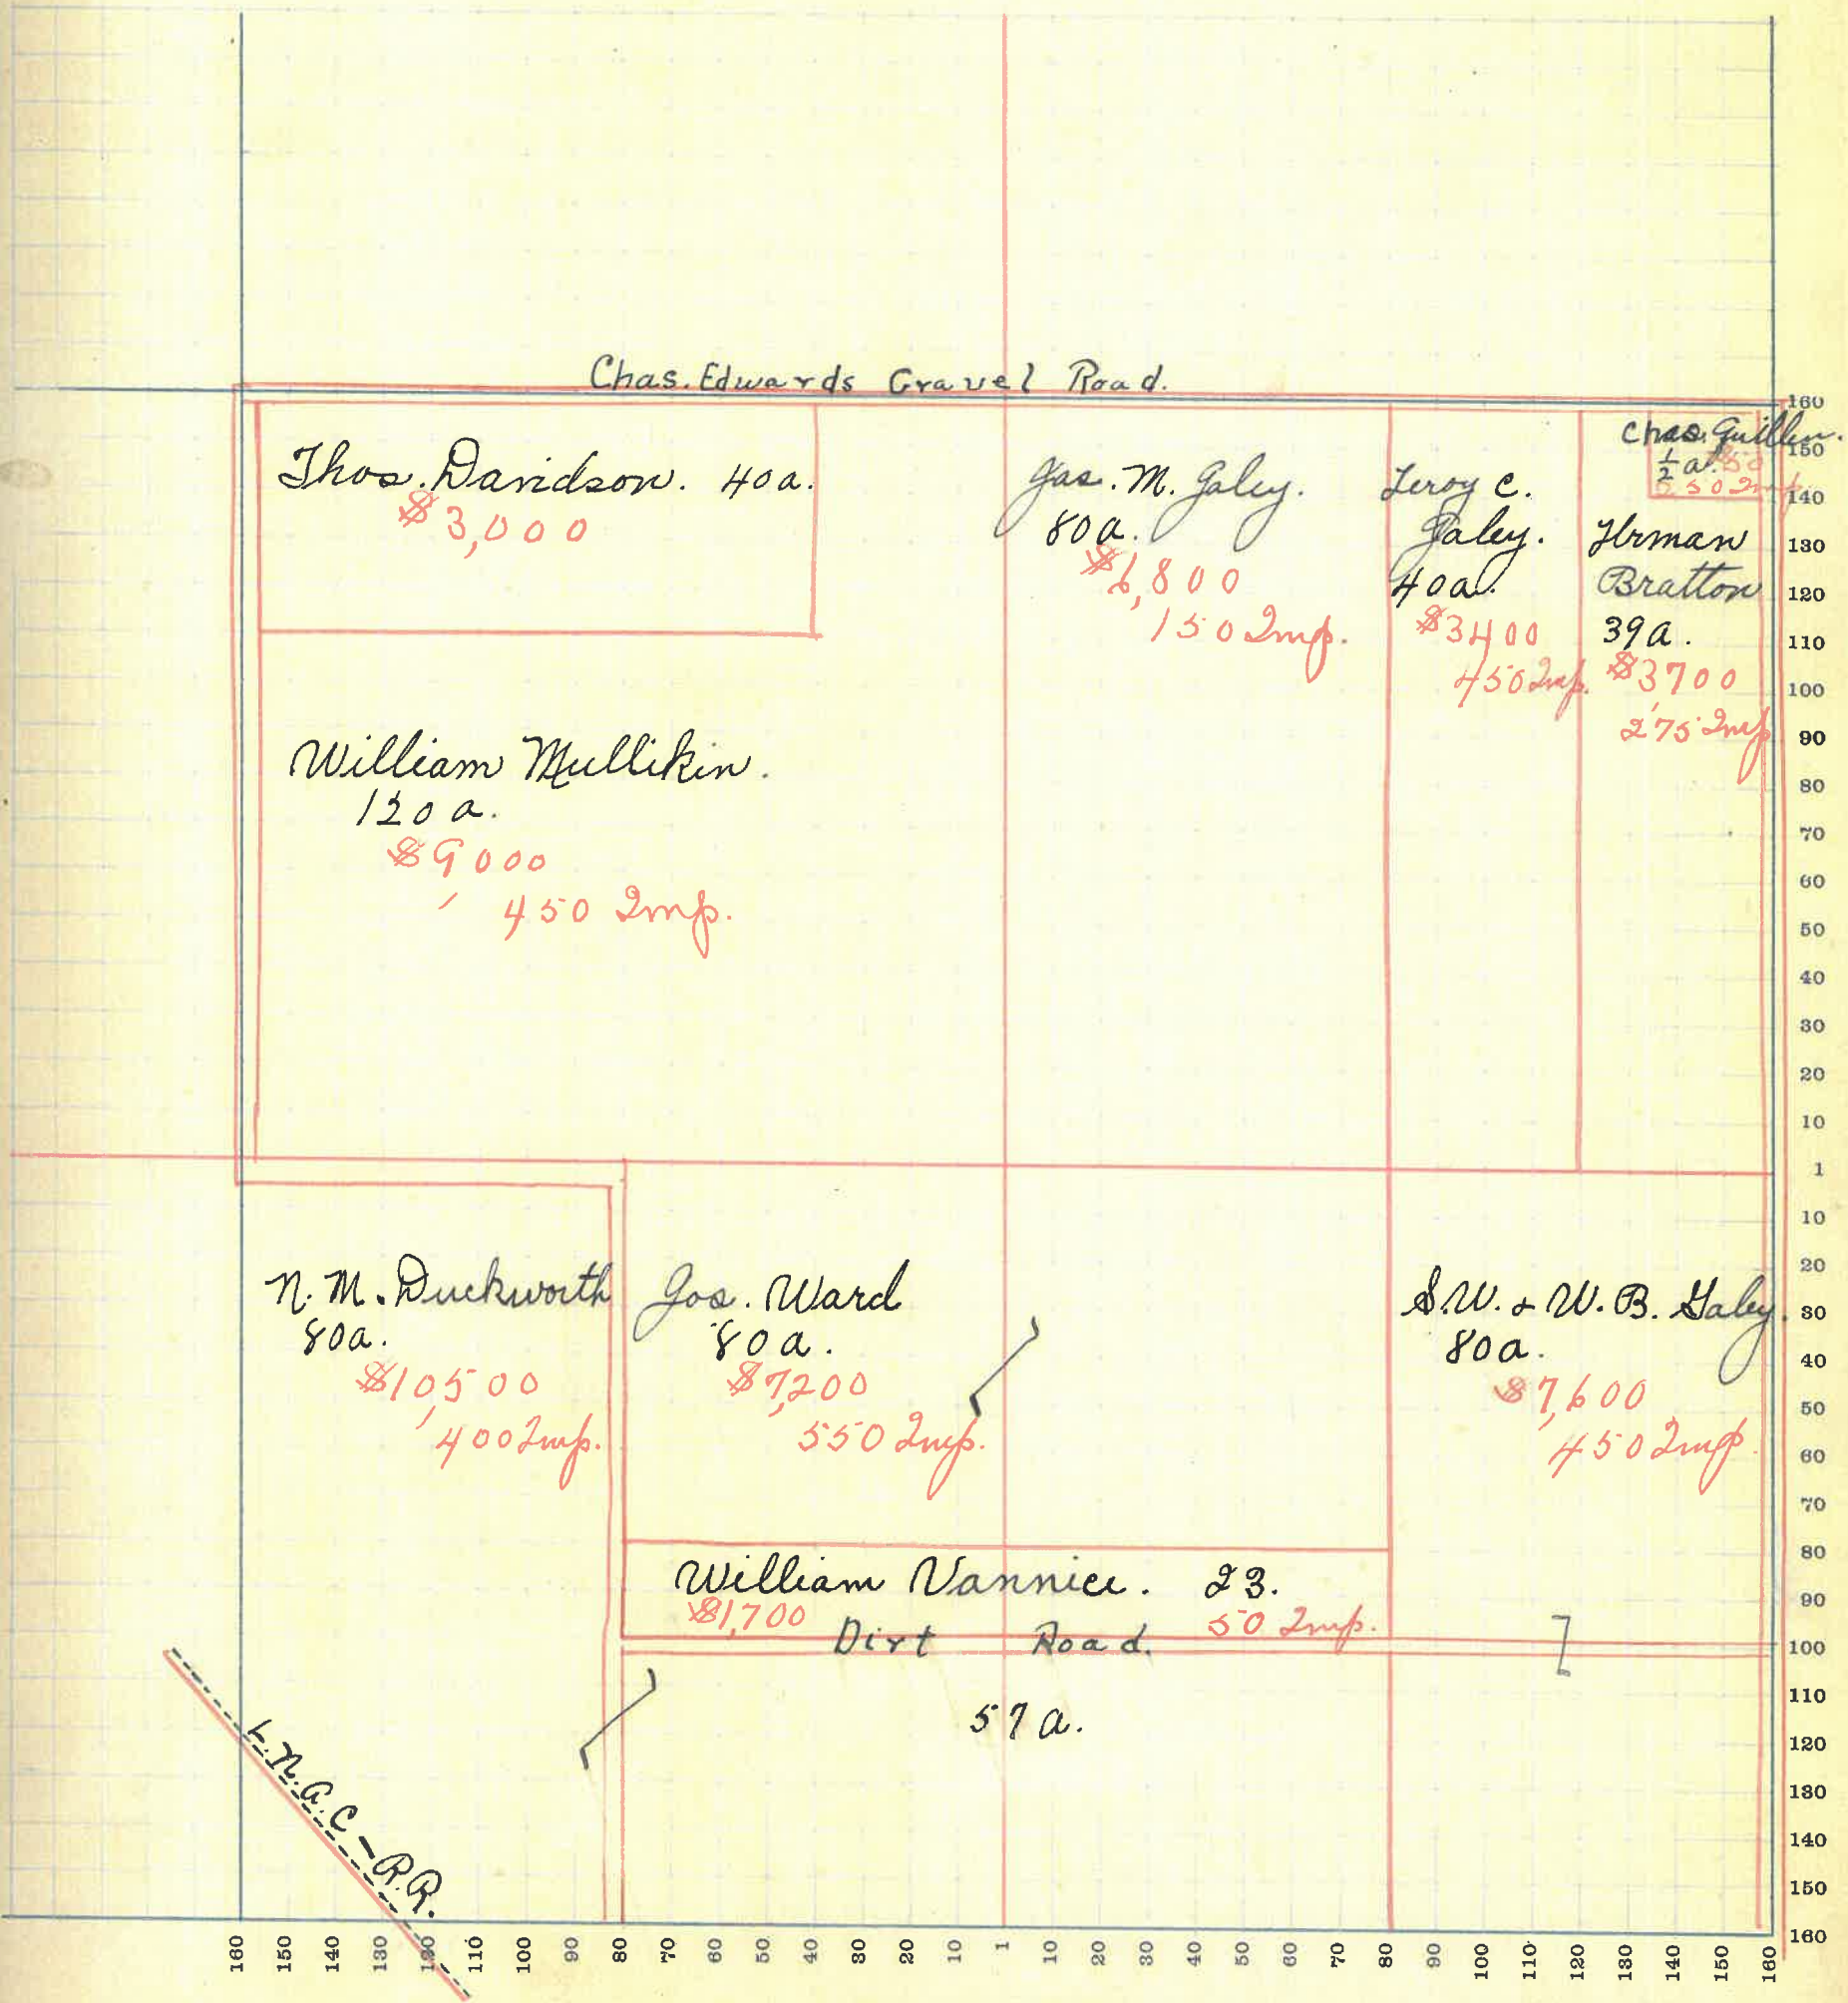 Chas. Edwards Gravel Road.
Thos. Davidson. 40a.
$3,000
Jas. M. Galey.
80a.
$6,800
150 Imp.
Leroy C.
Galey.
40a.
$3400
450 Imp.
Chas. Guillen.
½ a.
50 Imp.
Herman
Bratton
39a.
$3700
275 Imp
William Mullikin.
120 a.
$9000
450 Imp.
N. M. Duckworth
80a.
$10,500
400 Imp.
Jos. Ward
80a.
$7,200
550 Imp.
S.W. & W. B. Galey.
80a.
$7,600
450 Imp.
William Vannice. 23.
$1,700
50 Imp.
Dirt Road.
57a.
L.N.A.C - R.R.
160
150
140
130
120
110
100
90
80
70
60
50
40
30
20
10
1
10
20
30
40
50
60
70
80
90
100
110
120
130
140
150
160
160 150 140 130 120 110 100 90 80 70 60 50 40 30 20 10 1 10 20 30 40 50 60 70 80 90 100 110 120 130 140 150 160